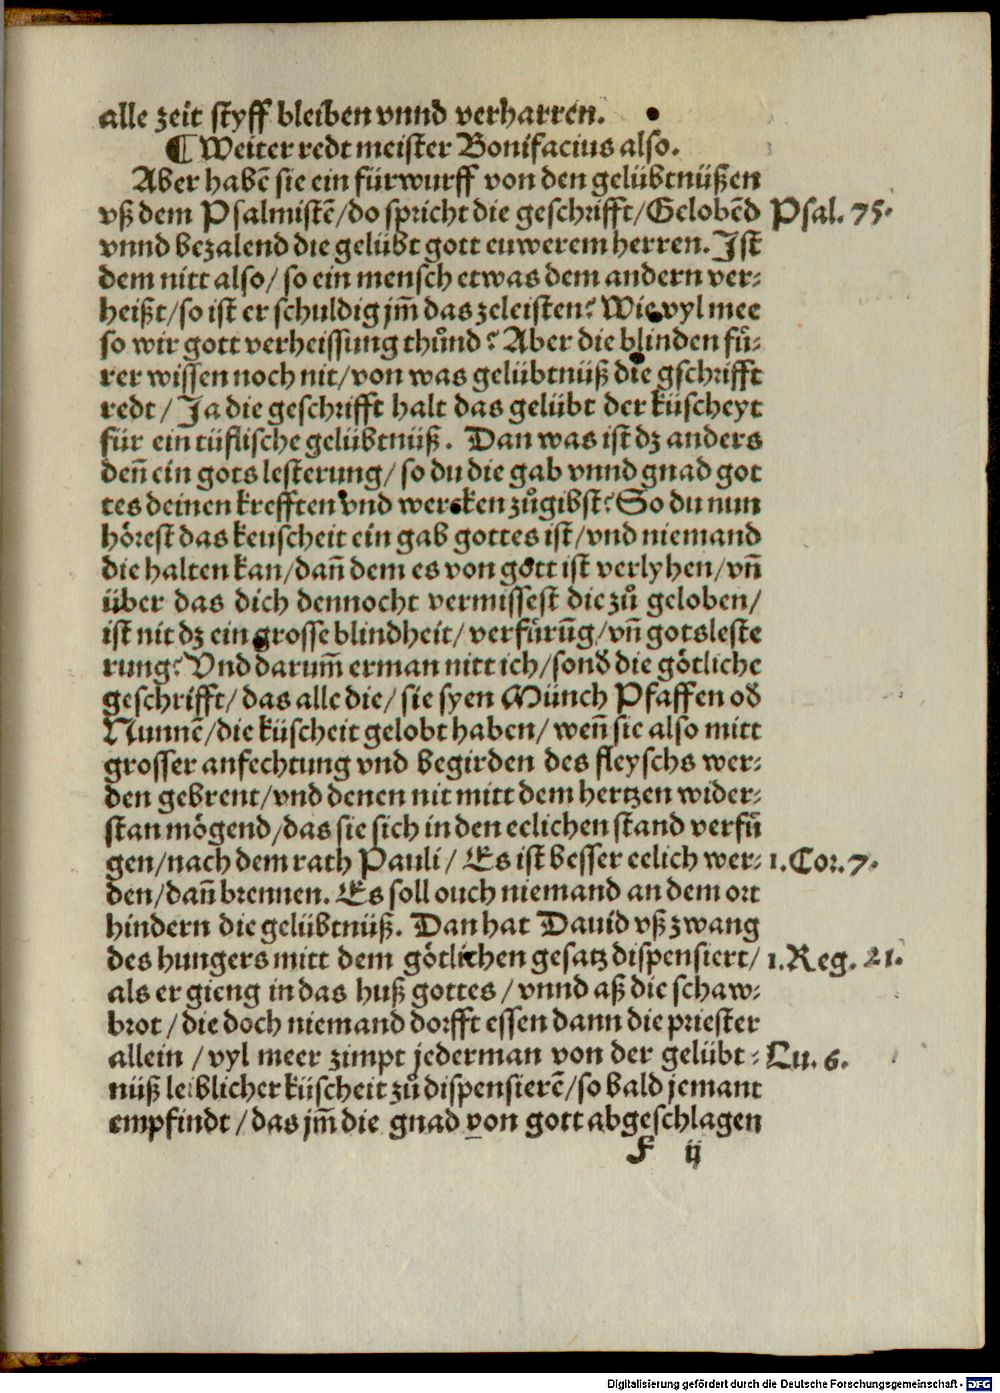 alle zeit styff bleiben vnnd verharren.
¶ Weiter redt meister Bonifacius also.
Aber habē sie ein fürwurff von den gelübtnüßen
vß dem Psalmistē/do spricht die geschrifft/Gelobēd Psal. 75.
vnnd bezalend die gelübt gott euwerem herren. Ist
dem nitt also/ so ein mensch etwas dem andern ver⸗
heißt/so ist er schuldig jm̄ das zeleisten? Wie vyl mee
so wir gott verheissung thůnd? Aber die blinden fü⸗
rer wissen noch nit/von was gelübtnüß die gschrifft
redt/ Ja die geschrifft halt das gelübt der küscheyt
für ein tüflische gelübtnüß. Dan was ist dz anders
den̄ ein gots lesterung/ so du die gab vnnd gnad got
tes deinen krefften vnd wercken zůgibst? So du nun
hörest das keuscheit ein gab gottes ist/vnd niemand
die halten kan/dan̄ dem es von gott ist verlyhen/vn̄
über das dich dennocht vermissest die zů geloben/
ist nit dz ein grosse blindheit/verfürūg/vn̄ gotsleste
rung? Vnd darum̄ erman nitt ich/sond̕ die götliche
geschrifft/das alle die/ sie syen Münch Pfaffen od̕
Nunnē/die küscheit gelobt haben/ wen̄ sie also mitt
grosser anfechtung vnd begirden des fleyschs wer⸗
den gebrent/vnd denen nit mitt dem hertzen wider⸗
stan mögend/das sie sich in den eelichen stand verfü
gen/nach dem rath Pauli/ Es ist besser eelich wer⸗ 1. Cor. 7.
den/dan̄ brennen. Es soll ouch niemand an dem ort
hindern die gelübtnüß. Dan hat Dauid vß zwang
des hungers mitt dem götlichen gesatz dispensiert/ 1. Reg. 21.
als er gieng in das huß gottes/ vnnd aß die schaw⸗
brot/ die doch niemand dorfft essen dann die priester
allein /vyl meer zimpt jederman von der gelübt⸗ Lu. 6.
nüß leiblicher küscheit zů dispensierē/so bald jemant
empfindt/das jm̄ die gnad von gott abgeschlagen
F ij
Digitalisierung gefördert durch die Deutsche Forschungsgemeinschaft - DFG